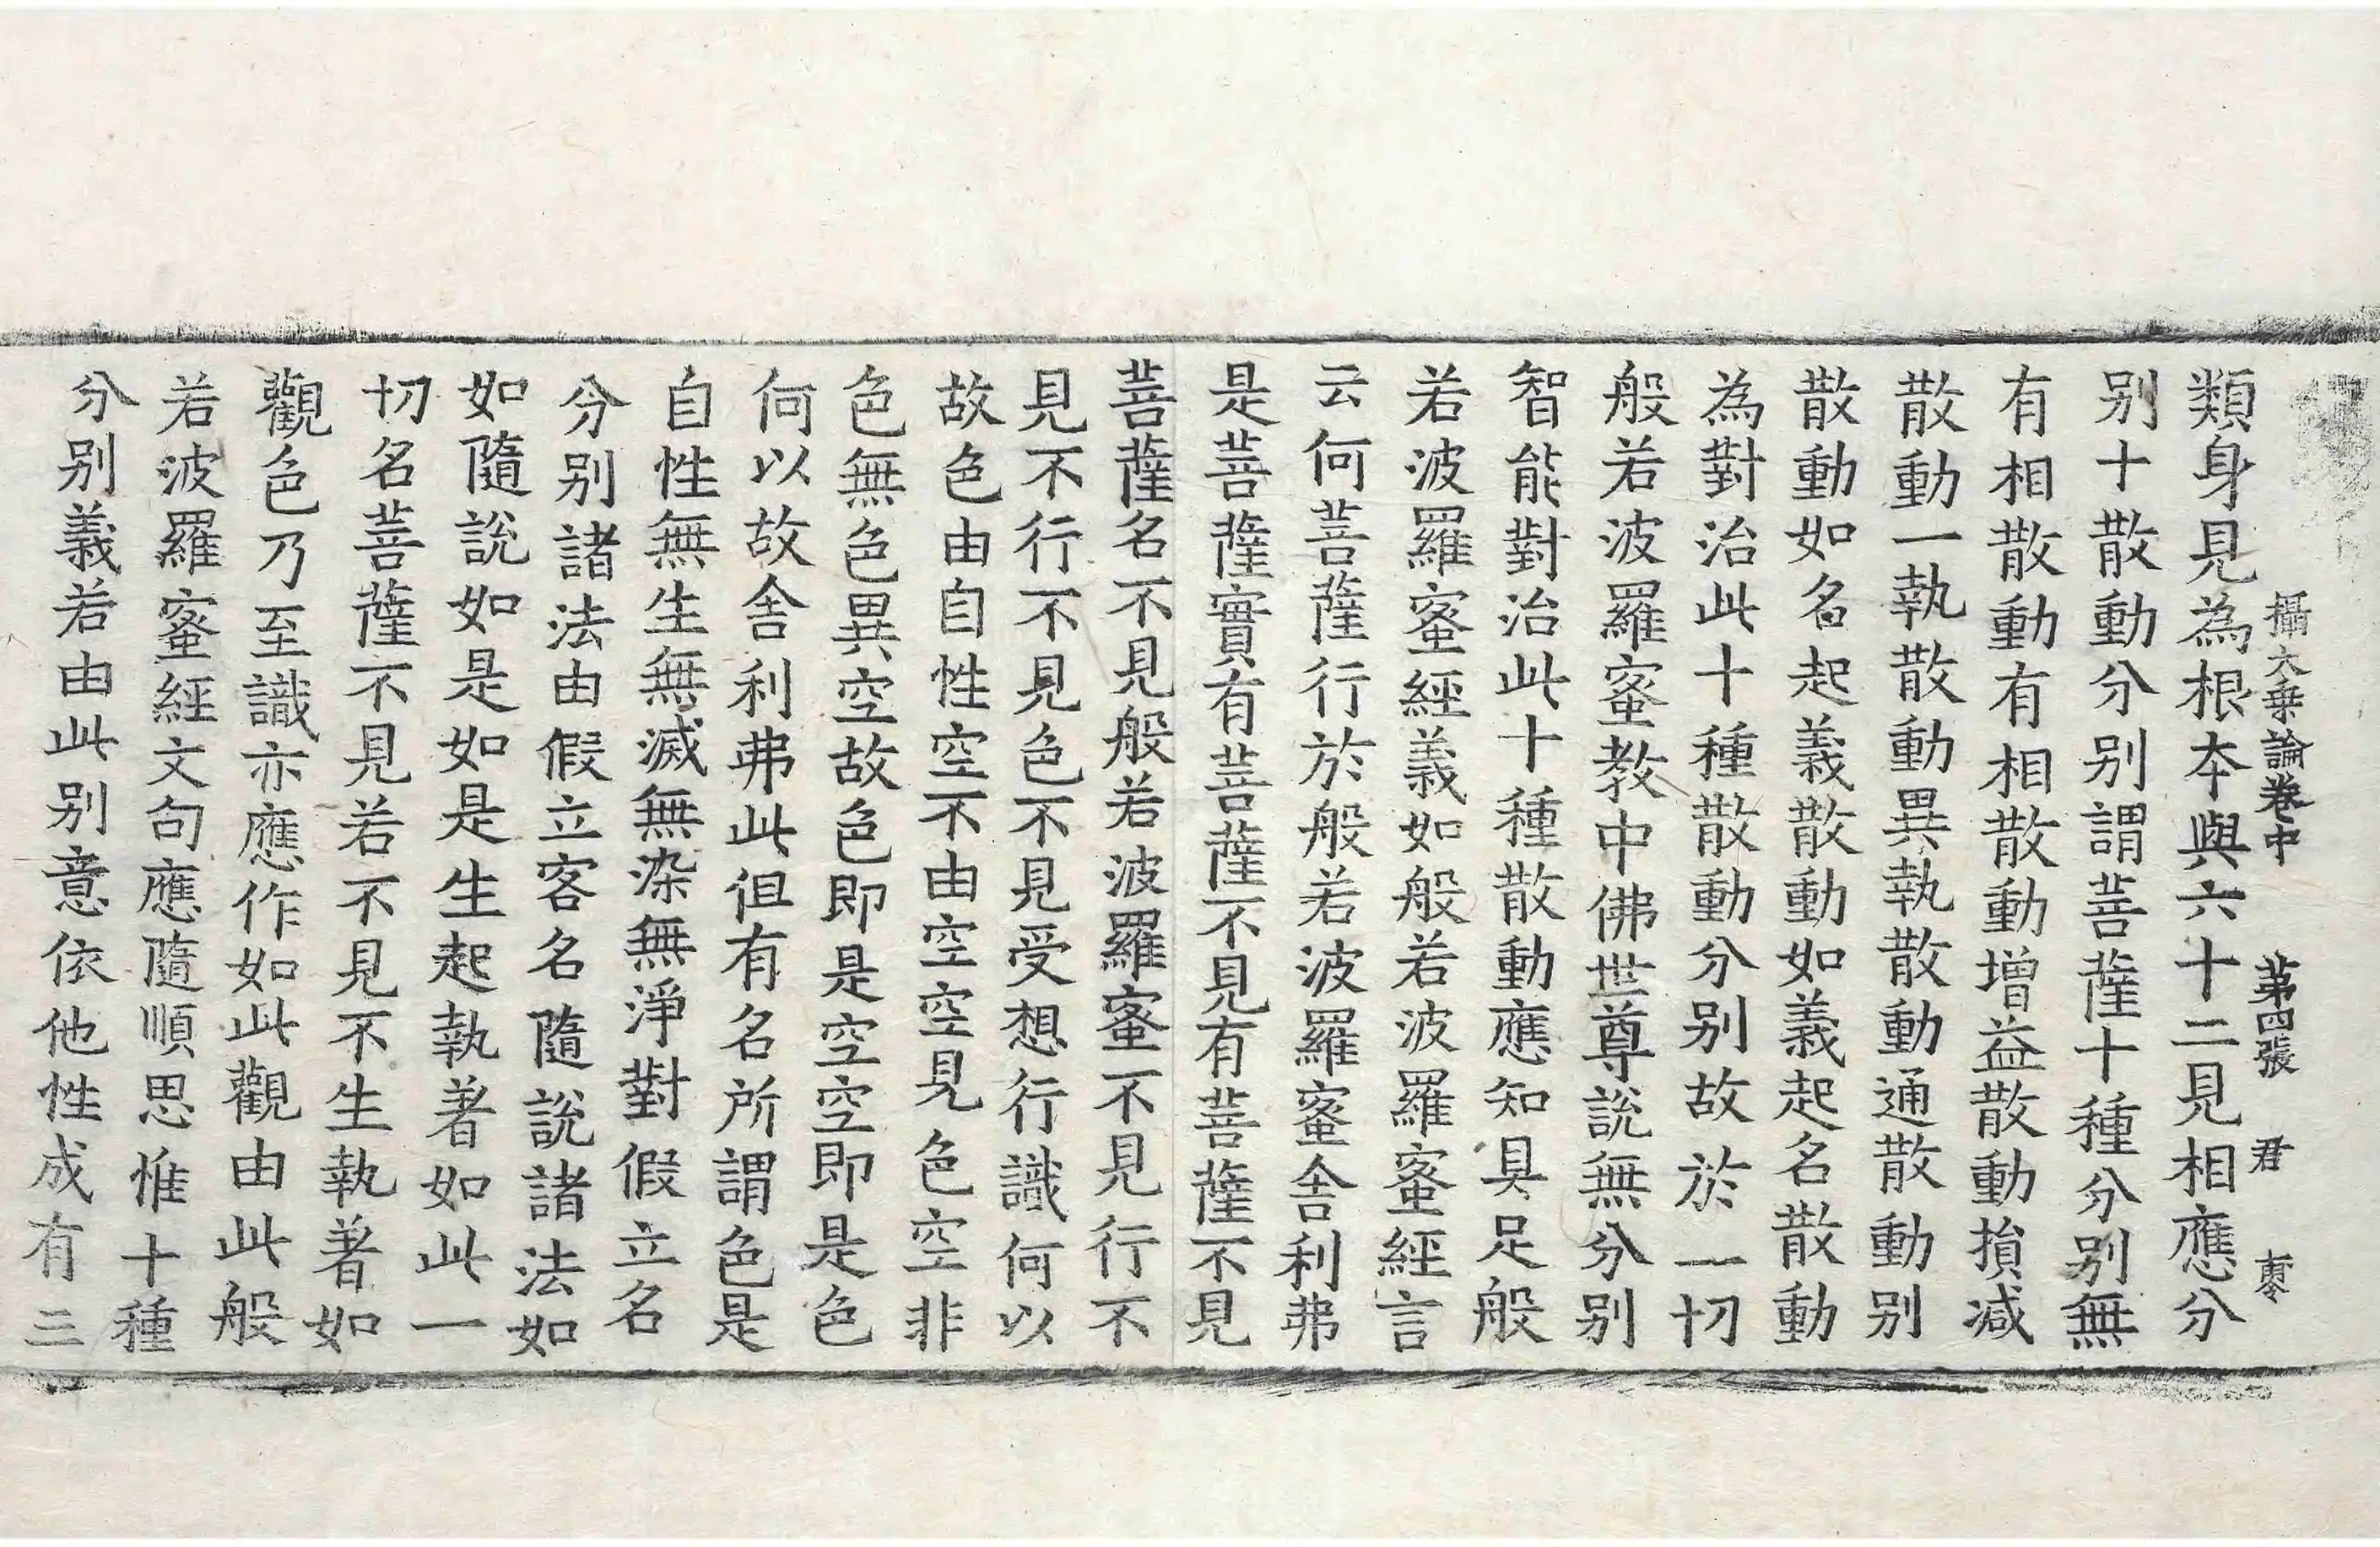 攝大乗論卷中　第四張　君
類身見為根夲與六十二見相應分
别十散動分别謂菩薩十種分别無
有相散動有相散動增益散動損减
散動一執散動異執散動通散動别
散動如名起義散動如義起名散動
為對治此十種散動分别故於一切
般若波羅蜜教中佛世尊說無分别
智能對治此十種散動應知具足般
若波羅蜜經義如般若波羅蜜經言
云何菩薩行於般若波羅蜜舎利弗
是菩薩實有菩薩不見有菩薩不見
菩薩名不見般若波羅蜜不見行不
見不行不見色不見受想行識何以
故色由自性空不由空空見色空非
色無色異空故色即是空空即是色
何以故舎利弗此但有名所謂色是
自性無生無滅無染無淨對假立名
分别諸法由假立客名隨說諸法如
如隨說如是如是生起執著如此一
切名菩薩不見若不見不生執著如
觀色乃至識亦應作如此觀由此般
若波羅蜜經文句應隨順思惟十種
分别義若由此别意依他性成有三